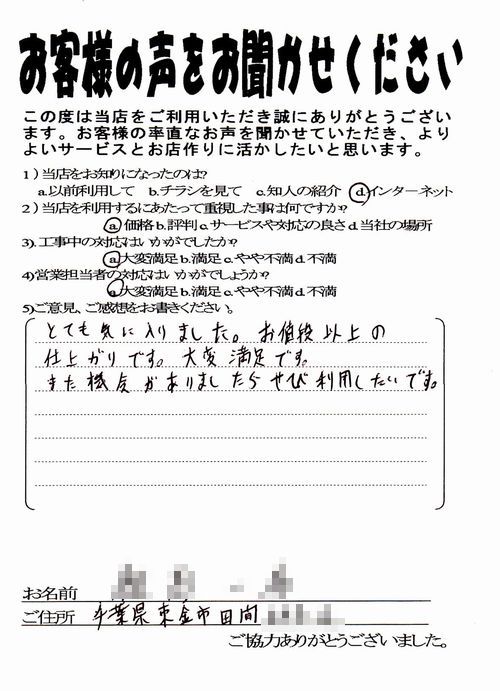 お客様の声をお聞かせください
この度は当店をご利用いただき誠にありがとうござい
ます。お客様の率直なお声を聞かせていただき、より
よいサービスとお店作りに活かしたいと思います。
1）当店をお知りになったのは?
a.以前利用して b.チラシを見て c.知人の紹介 d.インターネット
2）当店を利用するにあたって重視した事は何ですか?
a.価格 b.評判 c.サービスや対応の良さ d.当社の場所
3).工事中の対応はいかがでしたか?
a.大変満足 b.満足 c.やや不満 d.不満
4)営業担当者の対応はいかがでしょうか?
a.大変満足 b.満足 c.やや不満 d.不満
5)ご意見、ご感想をお書きください。
とても気に入りました。お値段以上の
仕上がりです。大変満足です。
また機会がありましたらぜひ利用したいです。
お名前
ご住所 千葉県東金市田間
ご協力ありがとうございました。